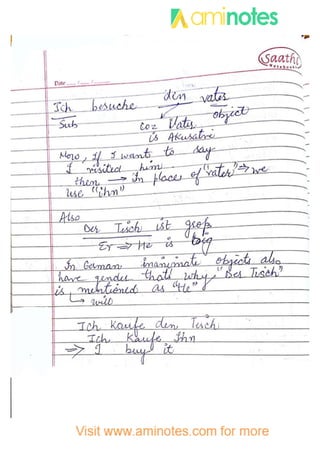 aminotes
Saathi
Notebook
Date
Ich besuche den vater
Sub coz Vater object
is Akusative
Now, if I want to say
I visited him
then → In place of "vater" ⇒ we
use "ihn"
Also
Der Tisch ist groß
Er ⇒ He is big
In German inanimate objects also
have gender that why, "Der Tisch"
is mentioned as "He"
Ich Kaufe den Tisch
Ich Kaufe Ihn
⇒ I buy it
Visit www.aminotes.com for more